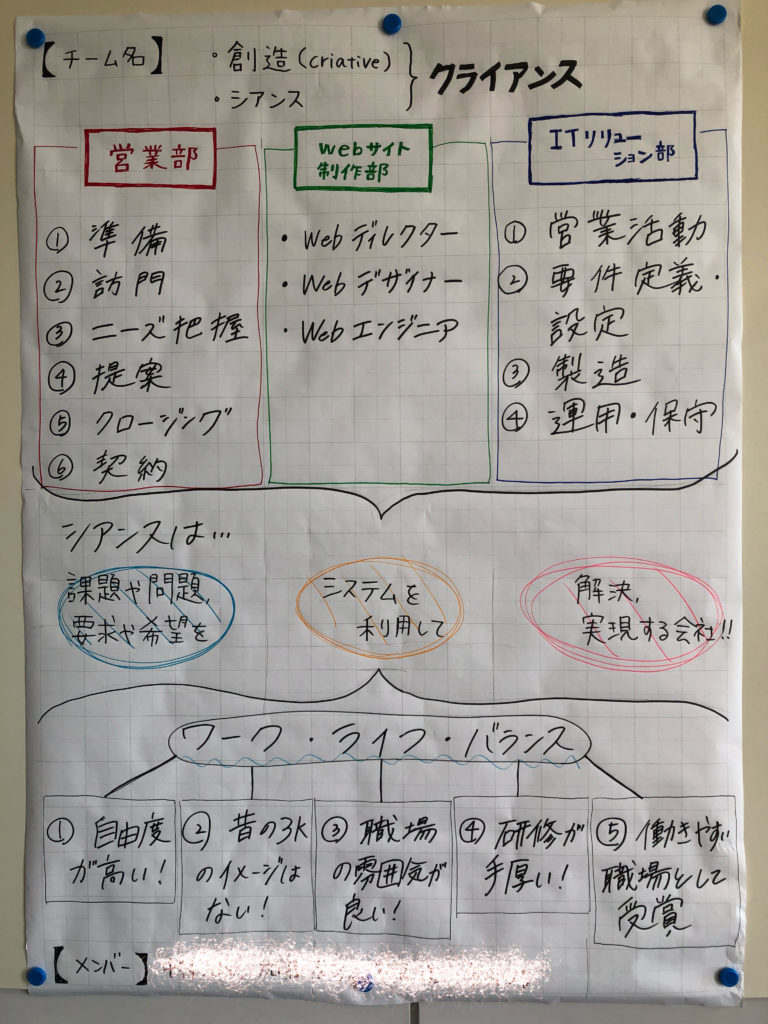 【チーム名】
・創造(criative)
・シアンス
クライアンス
営業部
① 準備
② 訪問
③ ニーズ把握
④ 提案
⑤ クロージング
⑥ 契約
Webサイト
制作部
・Webディレクター
・Webデザイナー
・Webエンジニア
ITリリュー
ション部
① 営業活動
② 要件定義・
設定
③ 製造
④ 運用・保守
シアンスは…
課題や問題,
要求や希望を
システムを
利用して
解決,
実現する会社!!
ワーク・ライフ・バランス
① 自由度
が高い!
② 昔の3K
のイメージは
ない!
③ 職場
の雰囲気が
良い!
④ 研修が
手厚い!
⑤ 働きやすい
職場として
受賞
【メンバー】